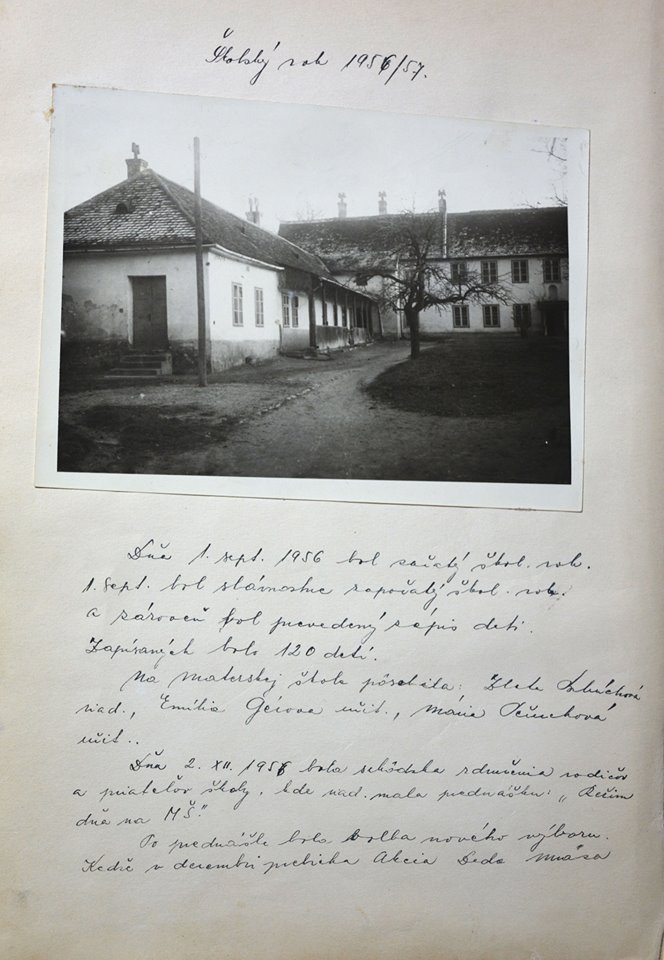 Školský rok 1956/57.
Dňa 1. sept. 1956 bol začatý škol. rok.
1. sept. bol slávnostne započatý škol. rok.
a zároveň bol prevedený zápis detí.
Zapísaných bolo 120 detí.
Na materskej škole pôsobila: Zlata
riad., Emília učit., Mária
učit..
Dňa 2. XII. 1956 bola schôdzka združenia rodičov
a priateľov školy, kde riad. mala prednášku: „Režim
dňa na MŠ."
Po prednáške bola voľba nového výboru.
Keďže v decembri prebieha Akcia Deda Mráza